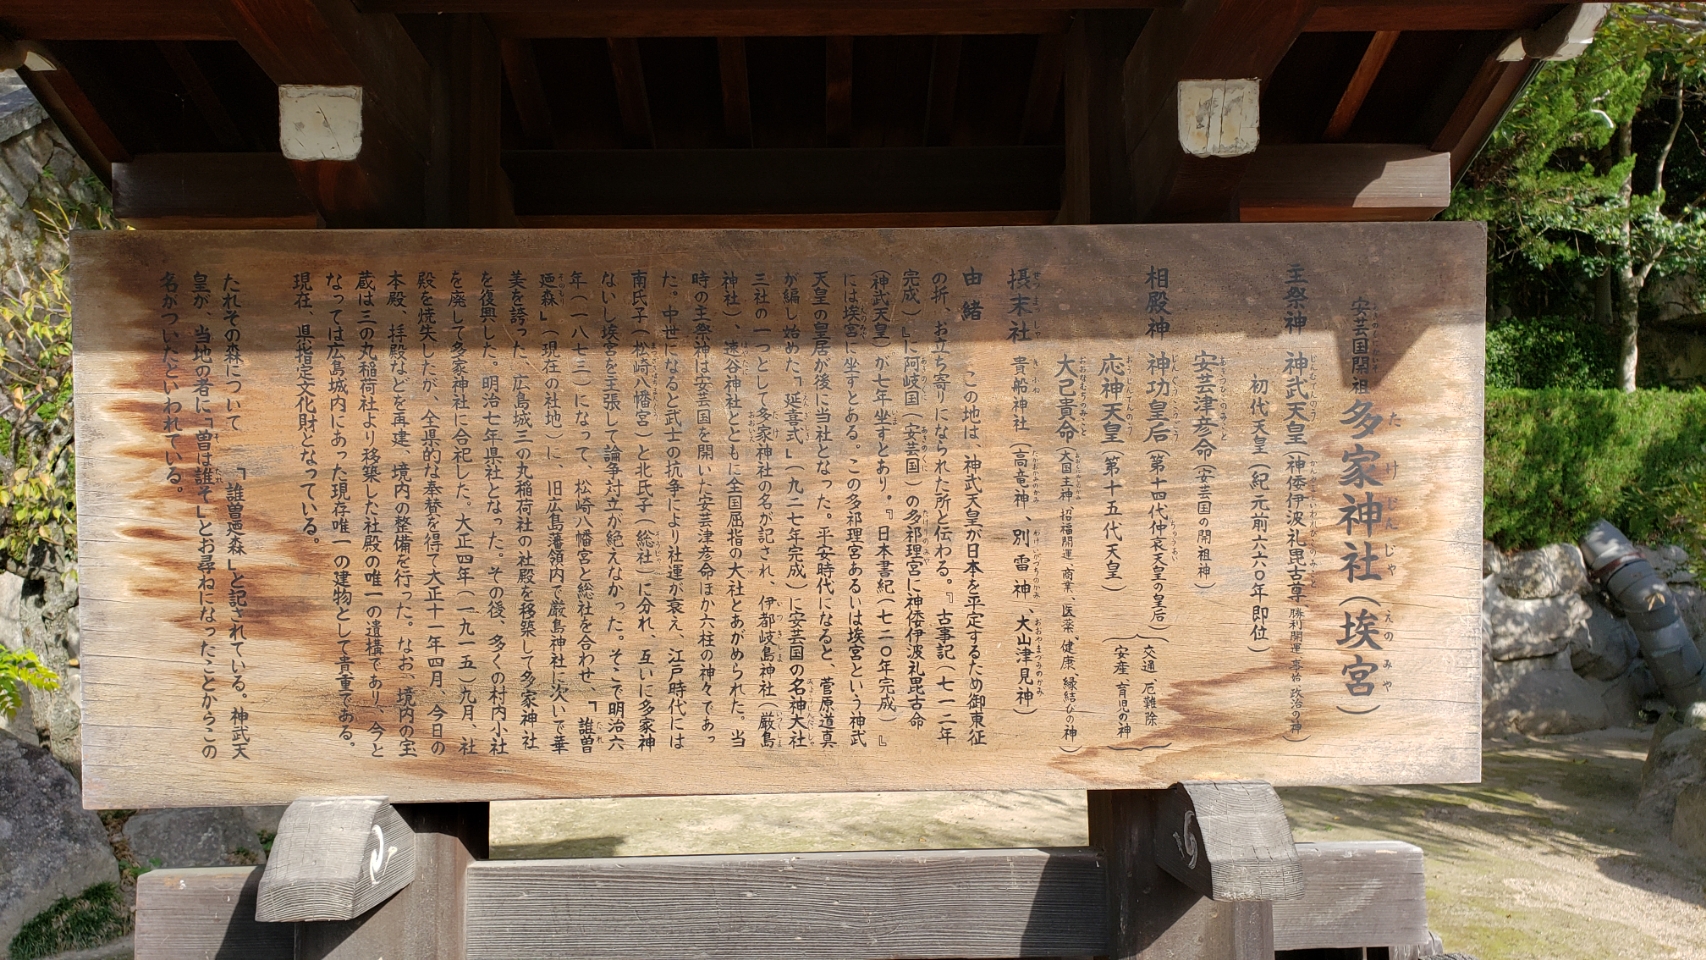 安芸国開祖 多家神社（埃宮）
主祭神 神武天皇（神倭伊波礼毘古尊 勝利開運 政治の神）
初代天皇（紀元前六六〇年即位）
安芸津彦命（安芸国の開祖神）
相殿神 神功皇后（第十四代仲哀天皇の皇后）
応神天皇（第十五代天皇）
（交通、厄難除 安産、育児の神）
大己貴命（大国主神 招福開運、商業、医薬、健康、縁結びの神）
摂末社 貴船神社（高竜神、別雷神、大山津見神）
由緒 この地は、神武天皇が日本を平定するため御東征
の折、お立ち寄りになられた所と伝わる。『古事記（七一二年
完成）』に阿岐国（安芸国）の多祁理宮に神倭伊波礼毘古命
（神武天皇）が七年坐すとあり。『日本書紀（七二〇年完成）』
には埃宮に坐すとある。この多祁理宮あるいは埃宮という神武
天皇の皇居が後に当社となった。平安時代になると、菅原道真
が編し始めた「延喜式」（九二七年完成）に安芸国の名神大社
三社の一つとして多家神社の名が記され、伊都岐島神社（厳島
神社）、速谷神社とともに全国屈指の大社とあがめられた。当
時の主祭神は安芸国を開いた安芸津彦命ほか六柱の神々であっ
た。中世になると武士の抗争により社運が衰え、江戸時代には
南氏子（松崎八幡宮）と北氏子（総社）に分れ、互いに多家神
ないし埃宮を主張して論争対立が絶えなかった。そこで明治六
年（一八七三）になって、松崎八幡宮と総社を合わせ、「誰曽
廼森」（現在の社地）に、旧広島藩領内で厳島神社に次いで華
美を誇った、広島城三の丸稲荷社の社殿を移築して多家神社
を復興した。明治七年県社となった。その後、多くの村内小社
を廃して多家神社に合祀した。大正四年（一九一五）九月、社
殿を焼失したが、全県的な奉賛を得て大正十一年四月、今日の
本殿、拝殿などを再建、境内の整備を行った。なお、境内の宝
蔵は三の丸稲荷社より移築した社殿の唯一の遺構であり、今と
なっては広島城内にあった現存唯一の建物として貴重である。
現在、県指定文化財となっている。
たれその森について 「誰曽廼森」と記されている。神武天
皇が、当地の者に「曽は誰そ」とお尋ねになったことからこの
名がついたといわれている。